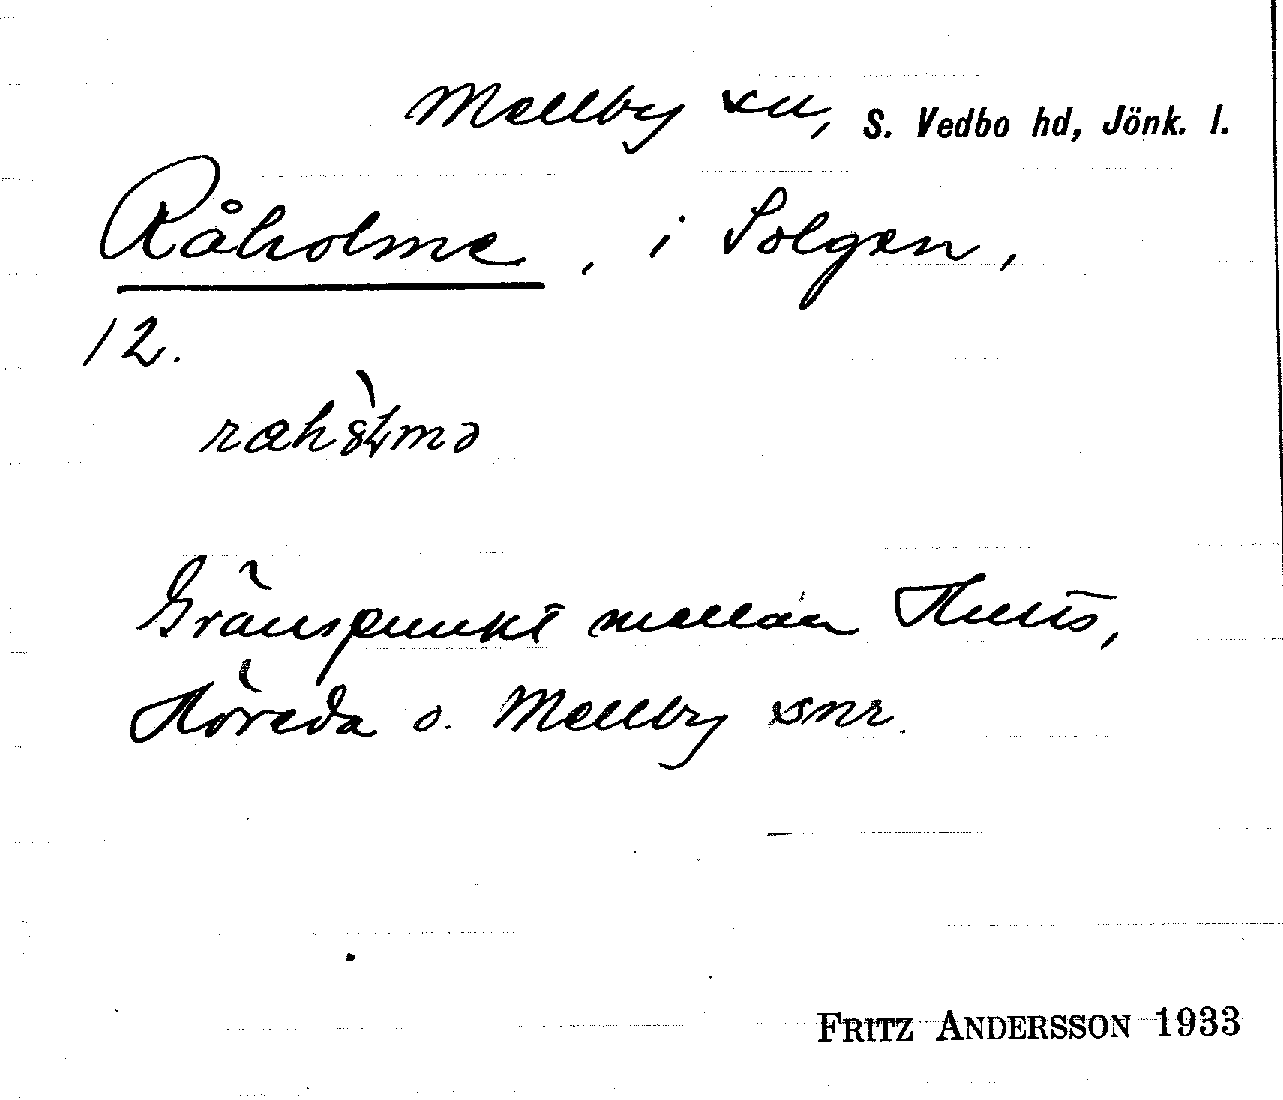 Mellby sn, S. Vedbo hd, Jönk. l.
Råholme, i Solgen,
12.
Gränspunkt mellan Hults,
Höreda o. Mellby snr.
FRITZ ANDERSSON 1933